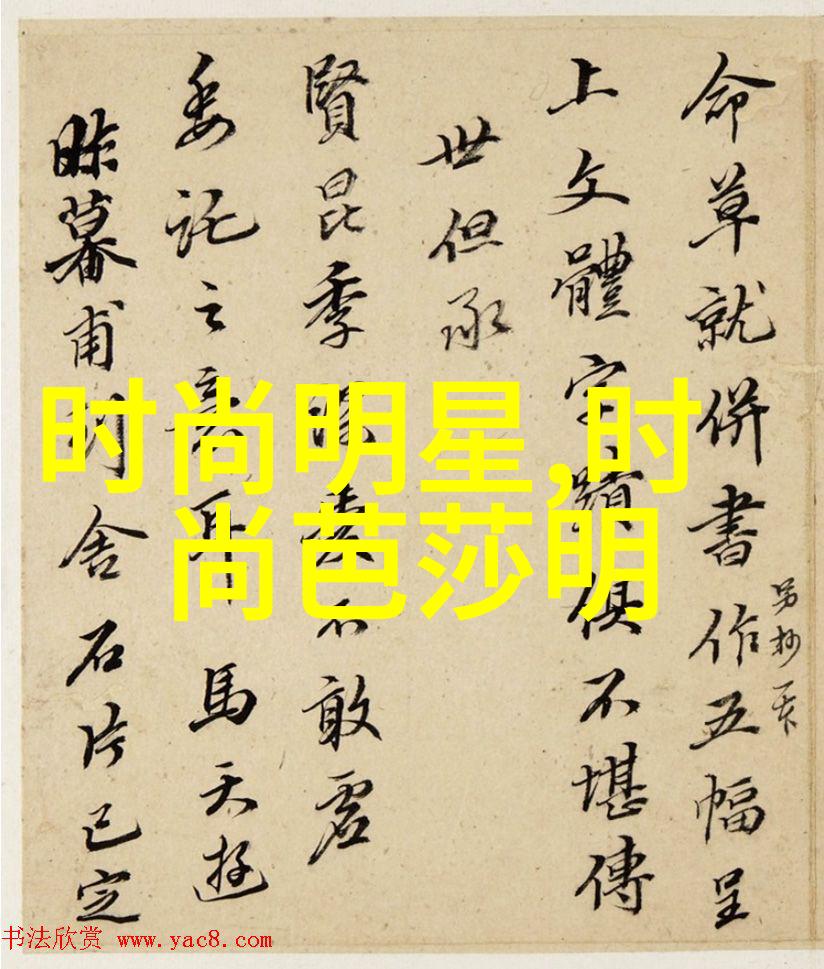 命草就併書作五幅呈
另抄一
上文體字蹟俱不堪傳
世但承
賢昆季不敢虛
委託之意耳 馬天游
昨暮甫到舍石片已定
时尚明星,时
尚芭莎明
书法欣赏 www.yac8.com